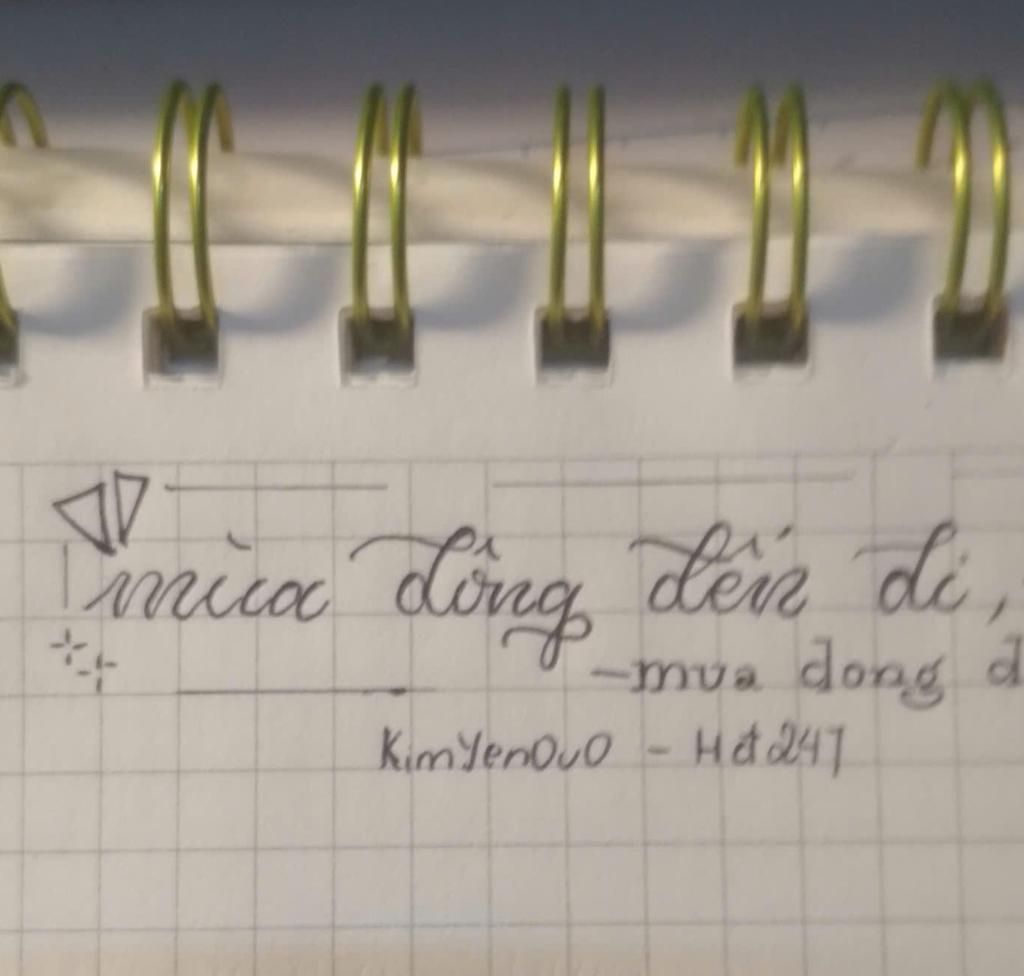 mùa đông đến đi,
-mua dong d
KimYen0u0 - Hđ247